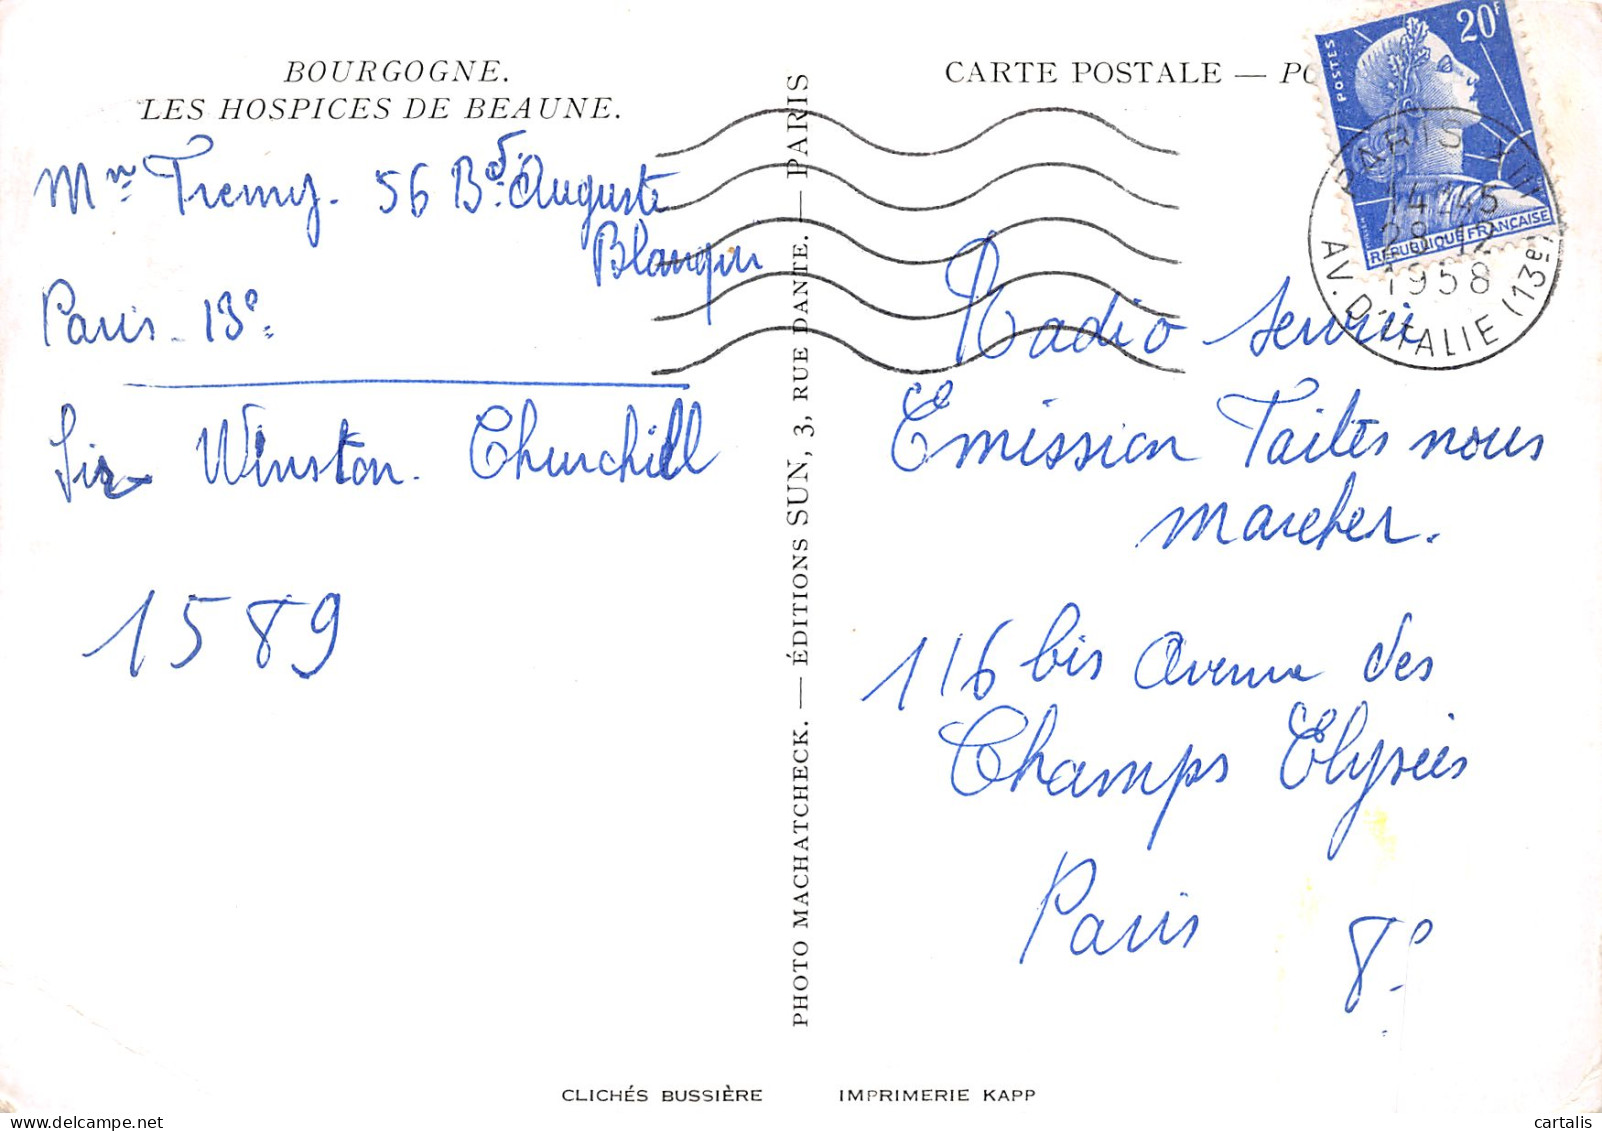 BOURGOGNE.
LES HOSPICES DE BEAUNE.
Mme Tremy. 56 Bd. Auguste
Blanqui
Paris - 13e
Sir Winston. Churchill
1589
PHOTO MACHATCHECK. — ÉDITIONS SUN, 3, RUE DANTE. — PARIS
CARTE POSTALE —
POSTES
20F
RÉPUBLIQUE FRANÇAISE
PARIS XIII
14H45
29-12
1958
AV. D'ITALIE (13e)
Radio Service
Emission Faites nous
marcher.
116 bis Avenue des
Champs Elysées
Paris 8e
CLICHÉS BUSSIÈRE
IMPRIMERIE KAPP
cartalis